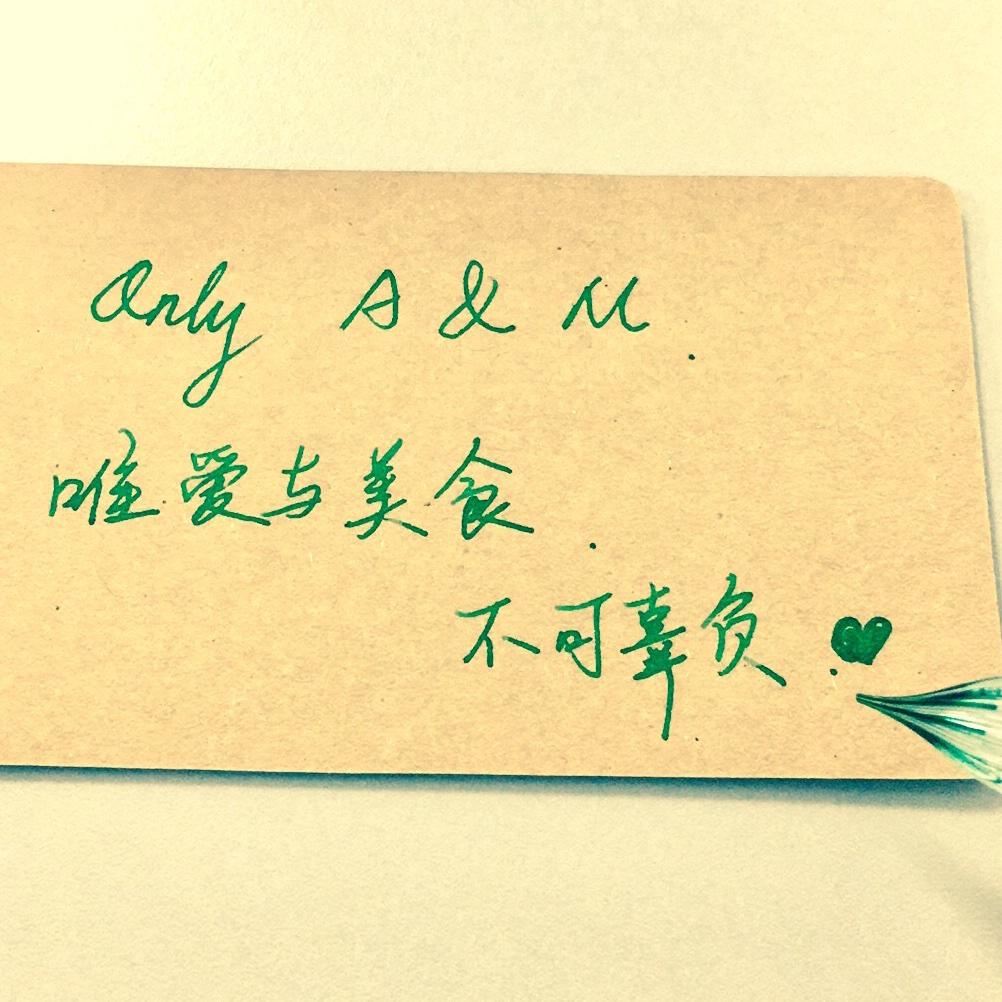 Only A & M.
唯爱与美食.
不可辜负.